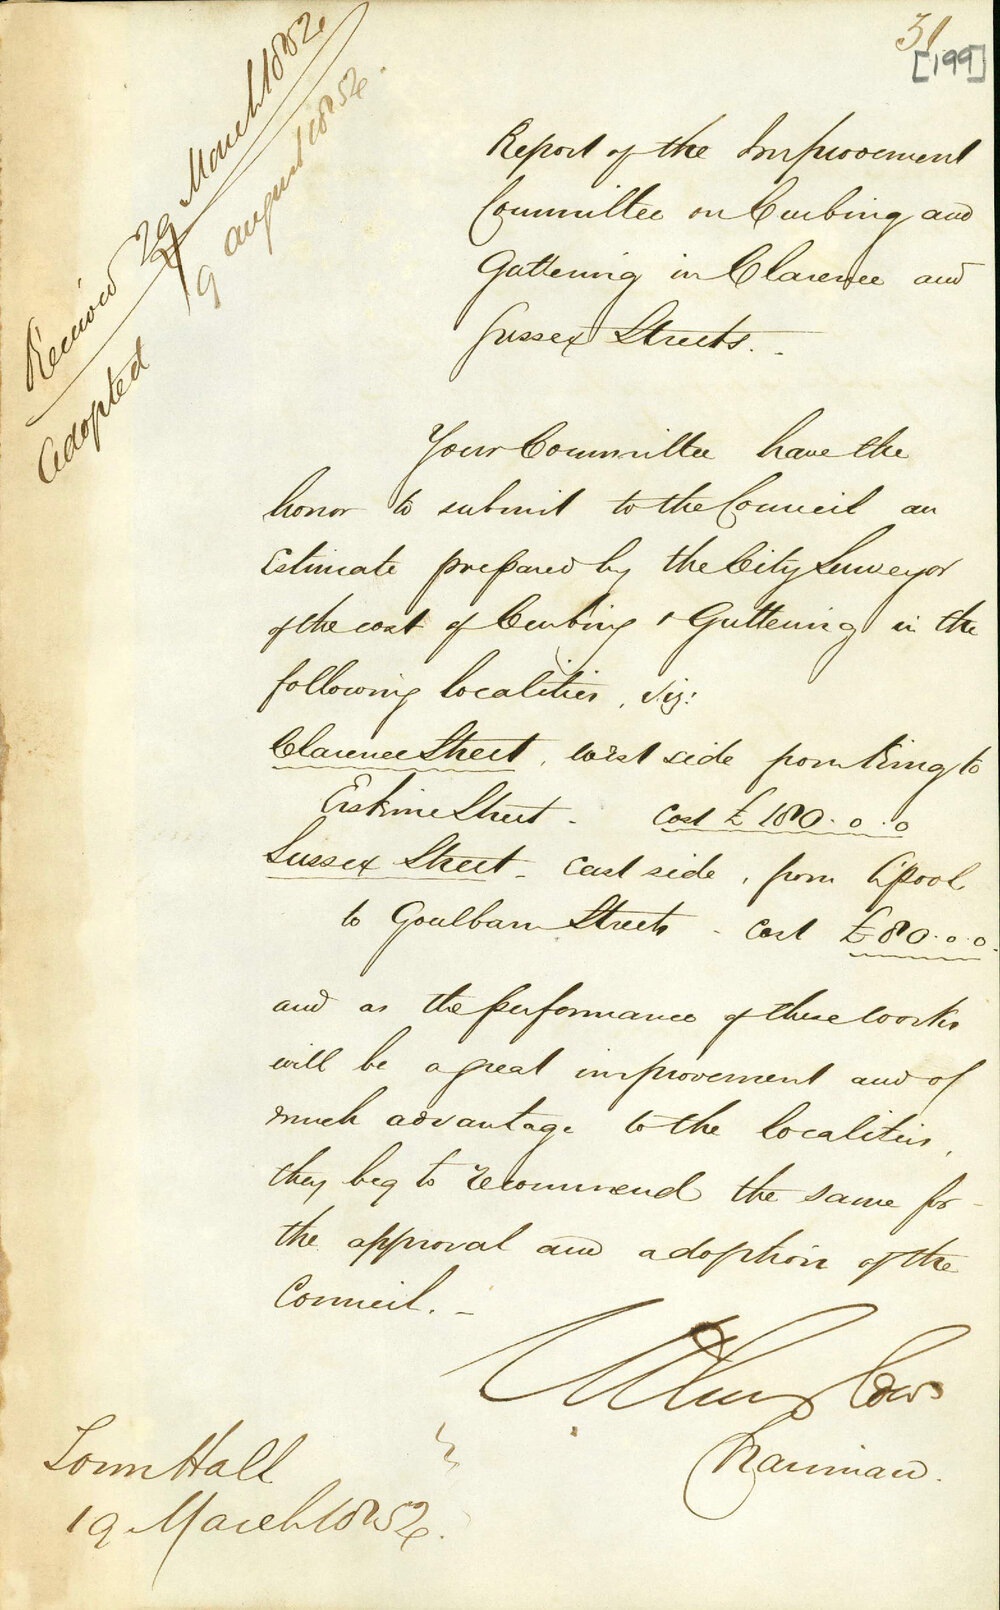 31
[199]
Received 29 March 1852
Adopted 9 August 1852.
Report of the Improvement
Committee on Curbing and
Guttering in Clarence and
Sussex Streets.
Your Committee have the
honor to submit to the Council an
Estimate prepared by the City Surveyor
of the cost of Curbing & Guttering in the
following localities, viz:
Clarence Street, West side from King to
Erskine Street - Cost £180..0..0
Sussex Street - East side, from L'pool
to Goulburn Streets - Cost £80..0..0.
and as the performance of these works
will be a great improvement and of
much advantage to the localities,
they beg to recommend the same for
the approval and adoption of the
Council. -
Chairman.
Town Hall
19 March 1852.